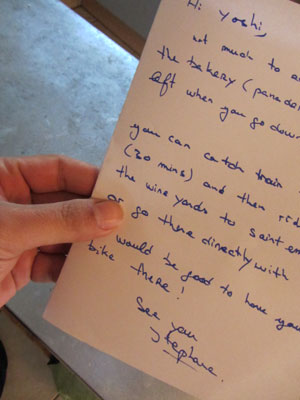 Hi Yoshi,
not much to
the bakery (
left when you go down
you can catch train
(30 mins) and then
the wine yards to saint
or go there directly with
would be good to have you
bike there!
See you
Stephane